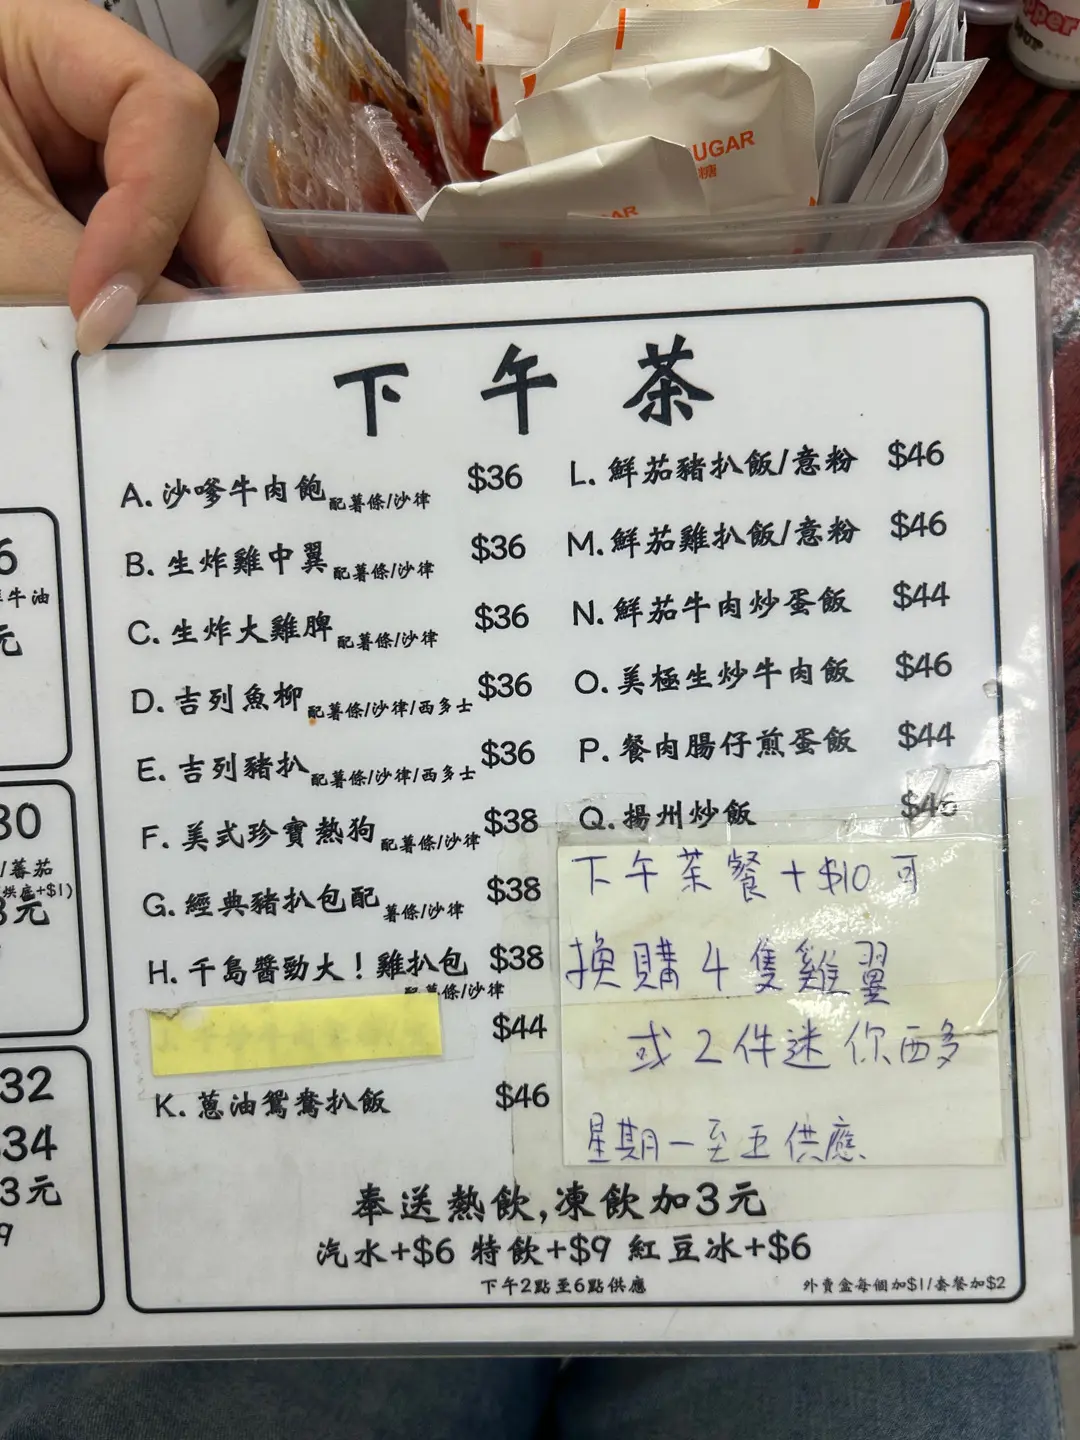 UGAR
糖
AR
下午茶
A. 沙嗲牛肉飽 配薯條/沙律 $36
B. 生炸雞中翼 配薯條/沙律 $36
C. 生炸大雞脾 配薯條/沙律 $36
D. 吉列魚柳 配薯條/沙律/西多士 $36
E. 吉列豬扒 配薯條/沙律/西多士 $36
F. 美式珍寶熱狗 配薯條/沙律 $38
G. 經典豬扒包配 薯條/沙律 $38
H. 千島醬勁大！雞扒包 $38
配薯條/沙律
$44
K. 蔥油鴛鴦扒飯 $46
L. 鮮茄豬扒飯/意粉 $46
M. 鮮茄雞扒飯/意粉 $46
N. 鮮茄牛肉炒蛋飯 $44
O. 美極生炒牛肉飯 $46
P. 餐肉腸仔煎蛋飯 $44
Q. 揚州炒飯 $46
下午茶餐+$10可
換購4隻雞翼
或2件迷你西多
星期一至五供應
奉送熱飲,凍飲加3元
汽水+$6 特飲+$9 紅豆冰+$6
下午2點至6點供應
外賣盒每個加$1/套餐加$2
6
牛油
元
30
/蕃茄
烘底+$1)
元
32
34
3元
9